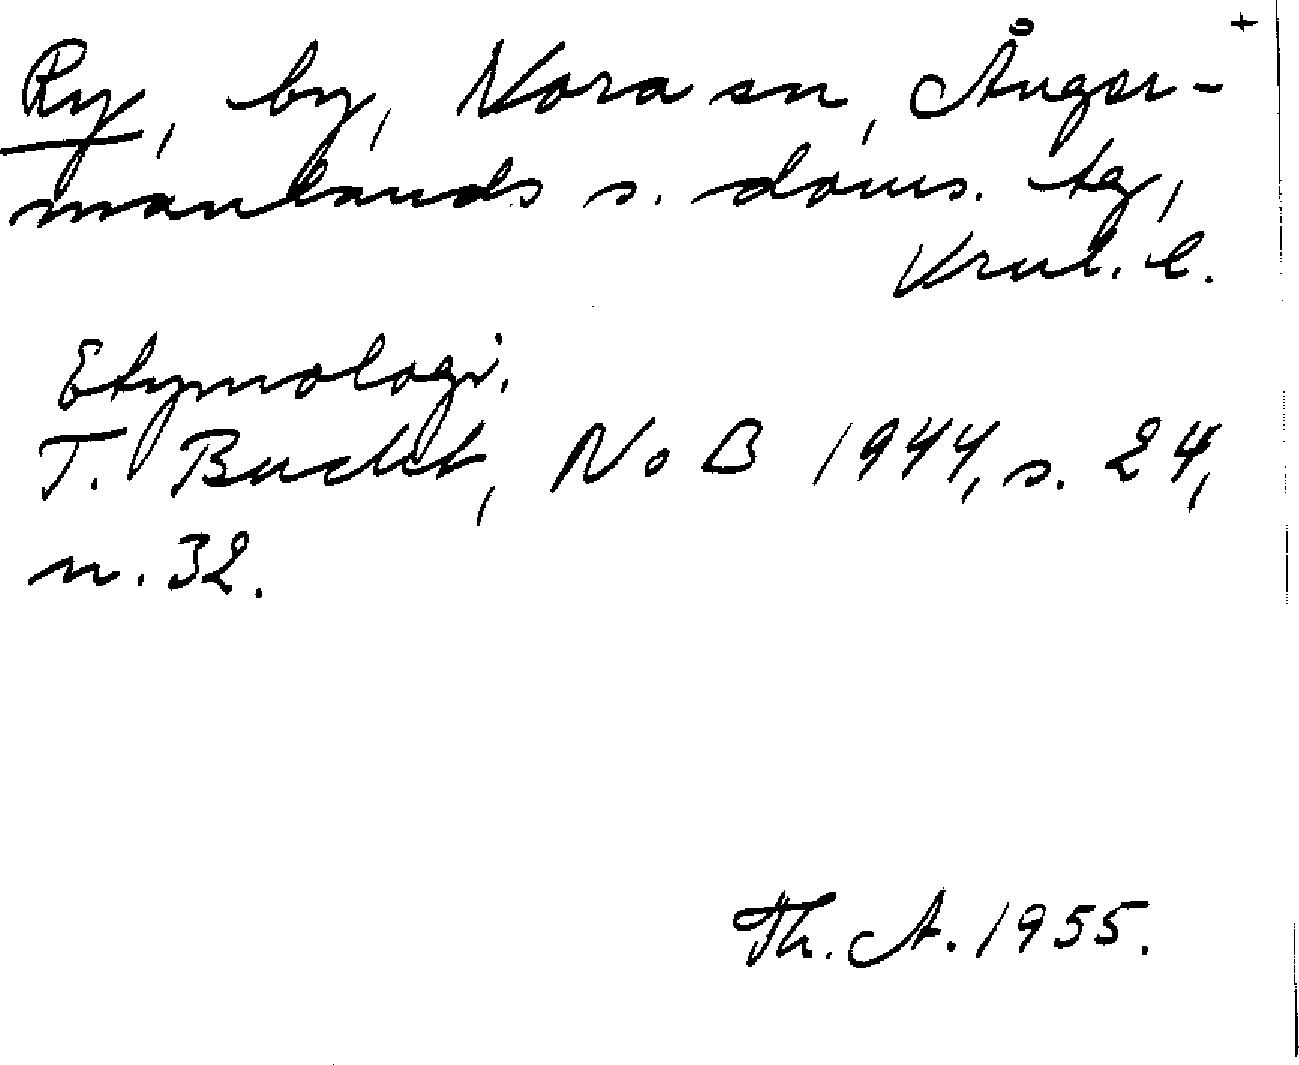 +
Ry, by, Nora sn, Ånger-
manlands s. doms. tg,
Vrnl. l.
Etymologi.
T. Bucht, NoB 1944, s. 24,
n. 32.
Th. A. 1955.